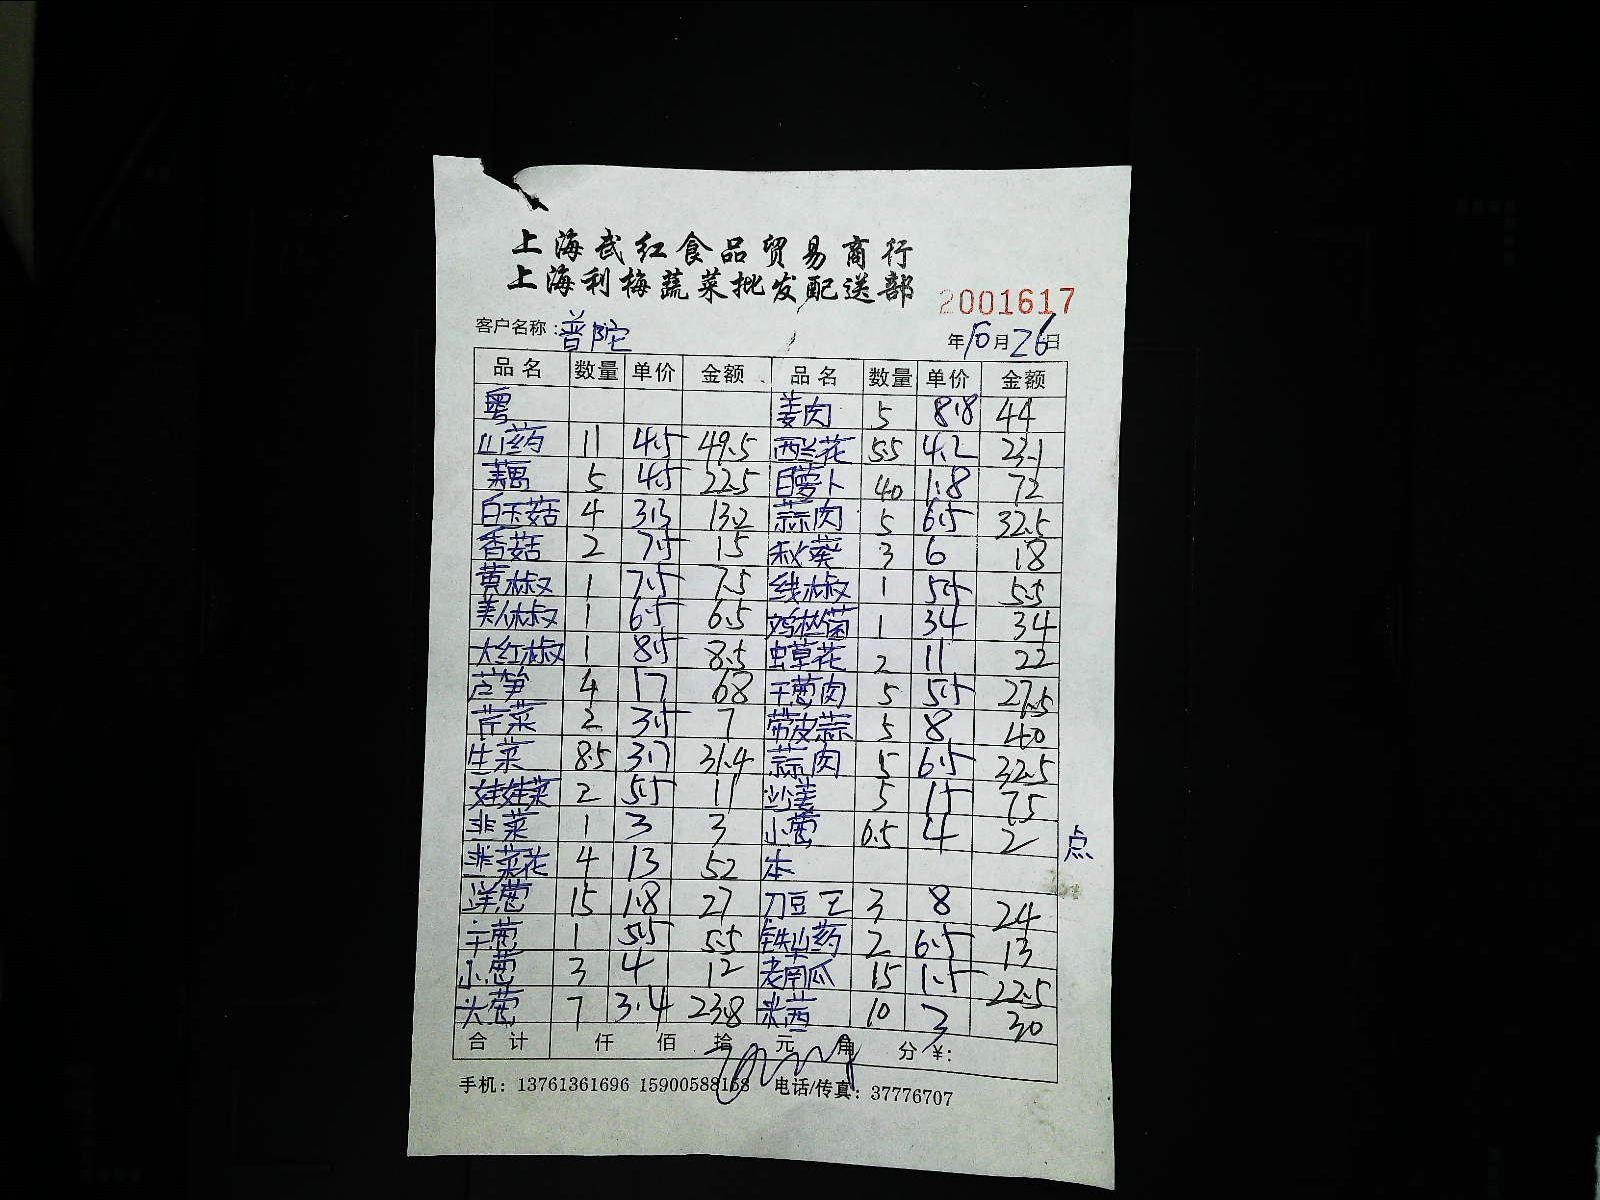 上海武红食品贸易商行
上海利梅蔬菜批发配送部
2001617
客户名称：普陀 年10月26日
品名 数量 单价 金额 品名 数量 单价 金额
粤 姜肉 5 8.8 44
山药 11 4.5 49.5 西兰花 5.5 4.2 23.1
藕 5 4.5 22.5 白萝卜 40 1.8 72
白玉菇 4 3.3 13.2 蒜肉 5 6.5 32.5
香菇 2 7.5 15 秋葵 3 6 18
黄椒 1 7.5 7.5 线椒 1 5.5 5.5
美人椒 1 6.5 6.5 鸡枞菌 1 34 34
大红椒 1 8.5 8.5 虫草花 2 11 22
芦笋 4 17 68 干葱肉 5 5.5 27.5
芹菜 2 3.5 7 带皮蒜 5 8 40
生菜 8.5 3.7 31.4 蒜肉 5 6.5 32.5
娃娃菜 2 5.5 11 沙姜 5 15 75
韭菜 1 3 3 小葱 0.5 4 2 点
韭菜花 4 13 52 本
洋葱 15 1.8 27 刀豆王 3 8 24
干葱 1 5.5 5.5 铁山药 2 6.5 13
小葱 3 4 12 老南瓜 15 1.5 22.5
大葱 7 3.4 23.8 米西 10 3 30
合计 仟 佰 拾 元 角 分 ¥:
手机：13761361696 15900588158 电话/传真：37776707